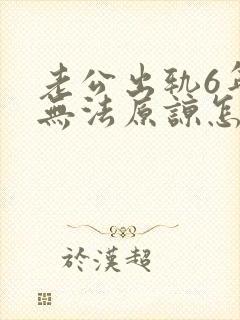 老公出軌6年
無法原諒怎
於漢超